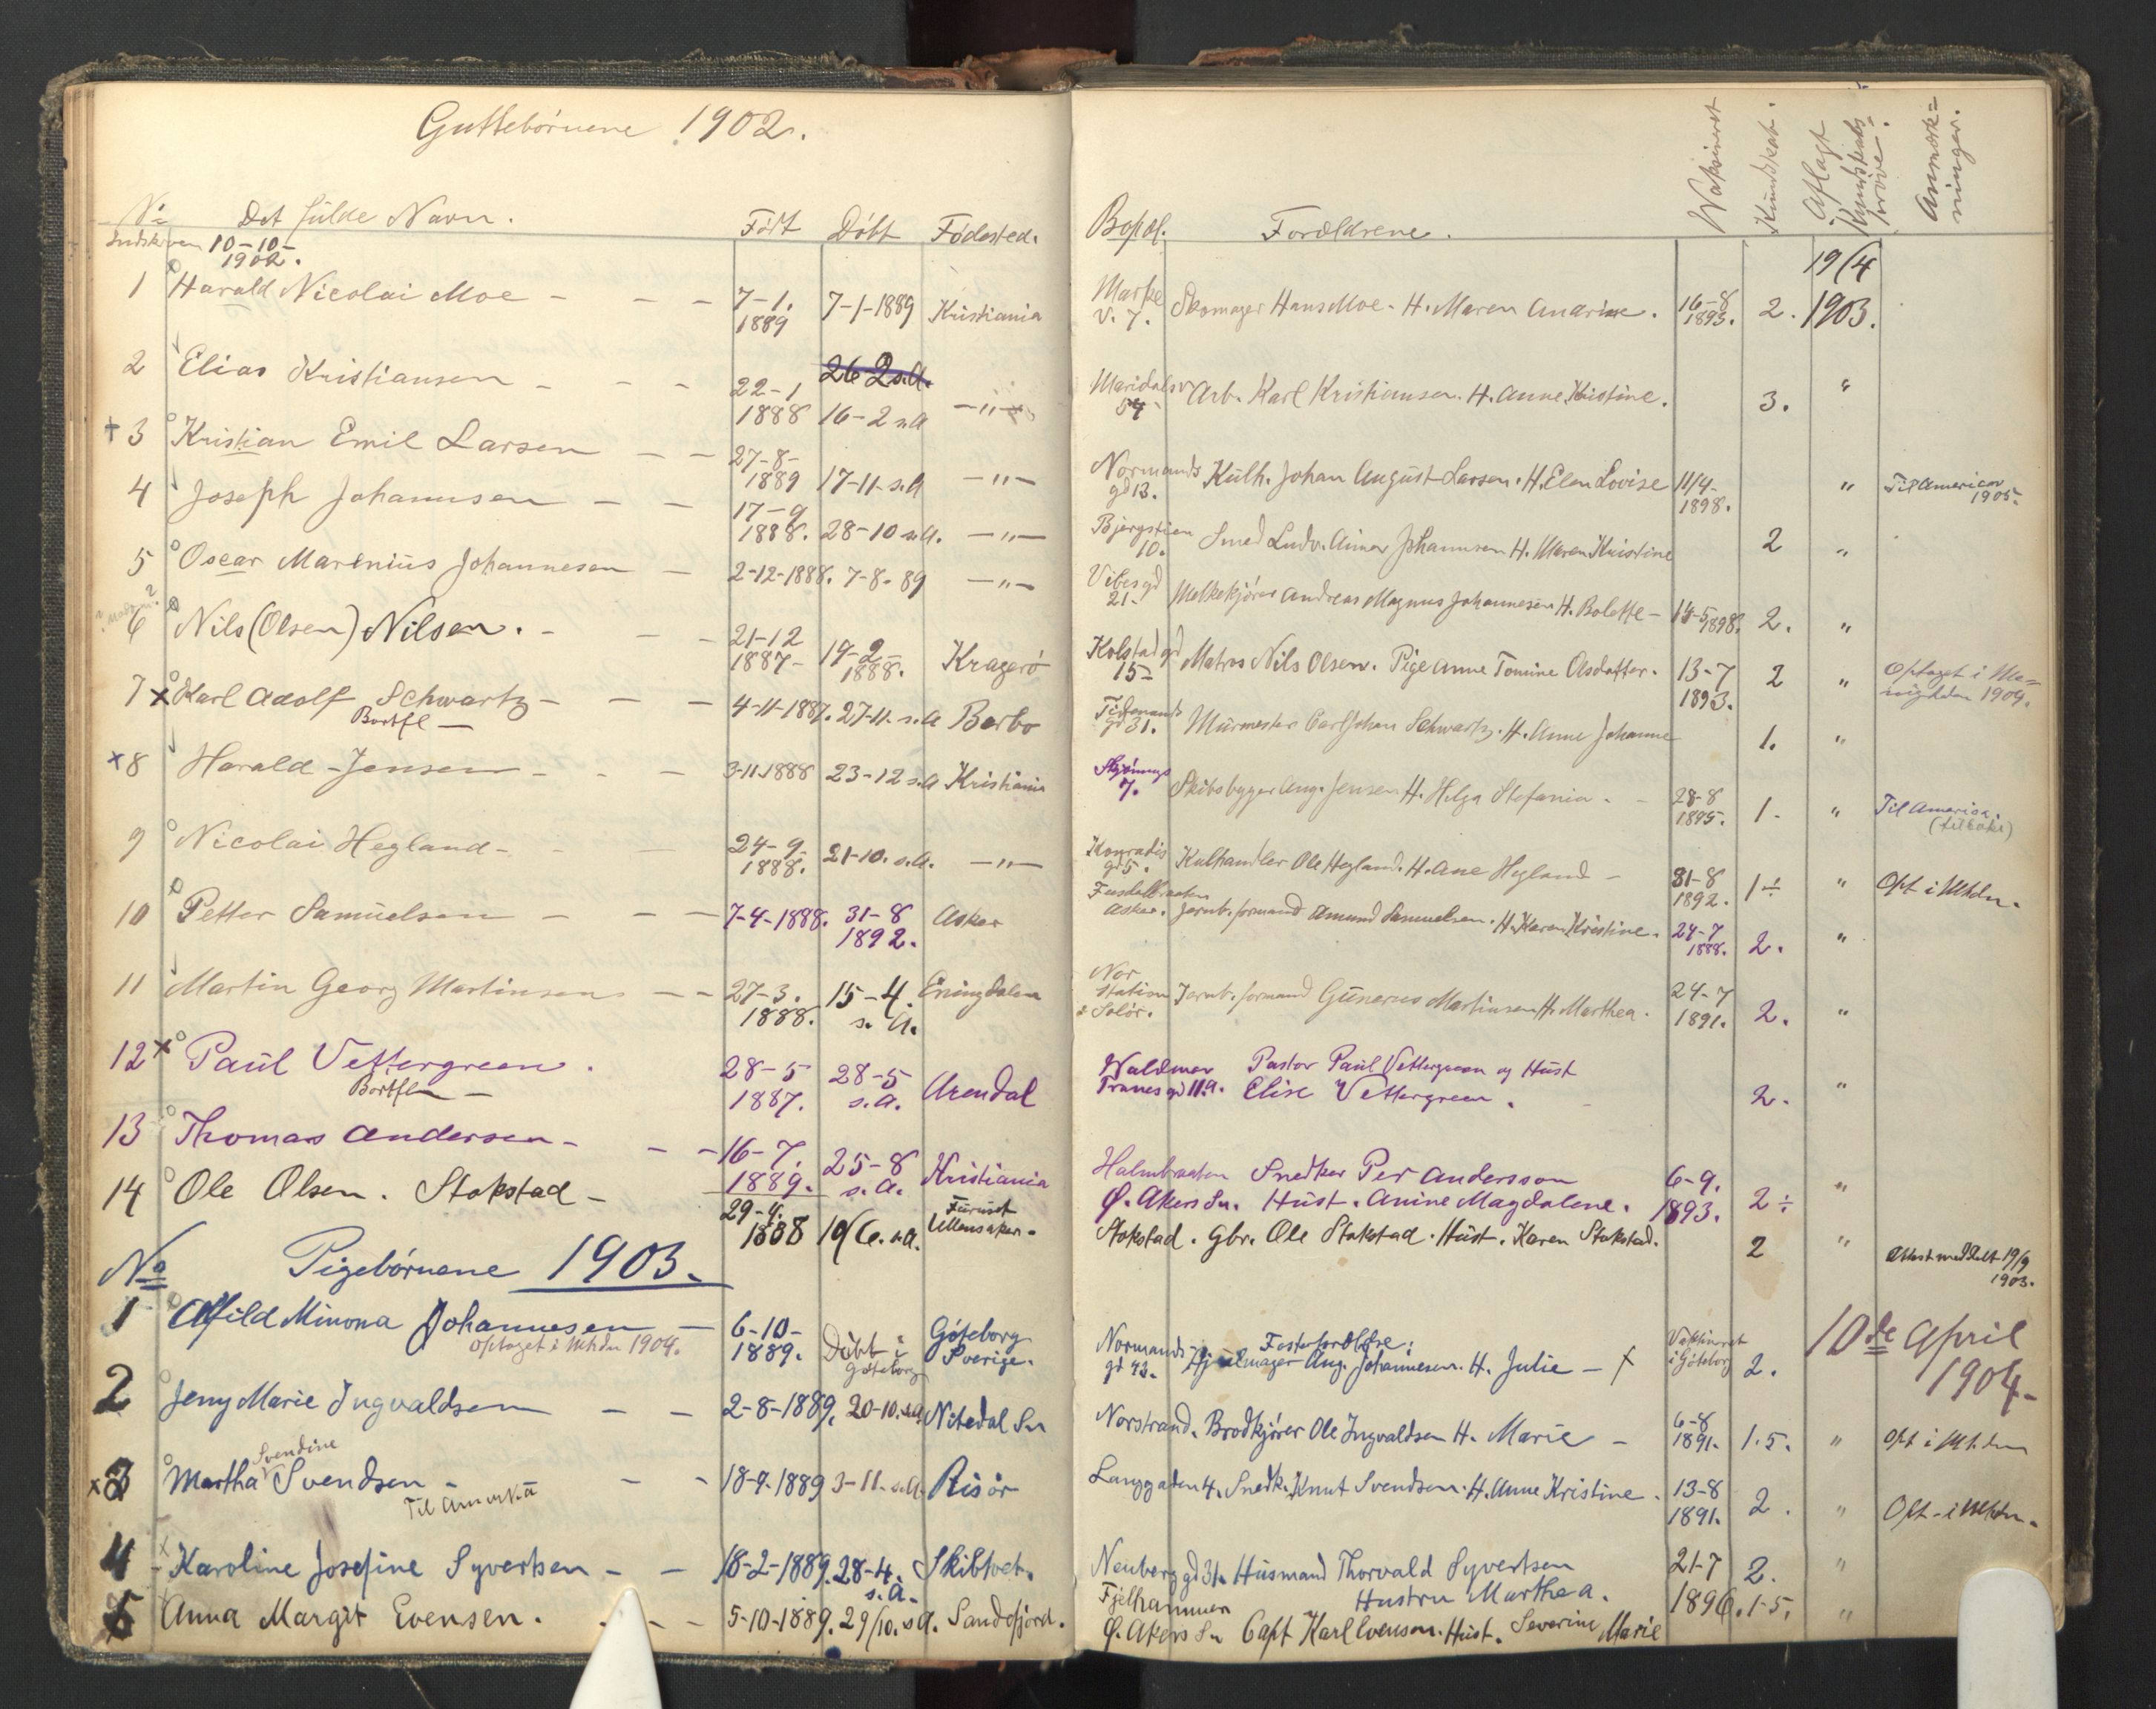 Guttebörnene 1902.
No Det fulde Navn. Född Döbt Födested.
Indskreven 10-10-1902.
1 Harald Nicolai Moe - - - 7-1. 1889 7-1-1889 Kristiania
2 Elias Kristiansen - - - 22-1 1888 26-2 s.A. 16-2 s.A -"-
+ 3 Kristian Emil Larsen - - 27-8- 1889 17-11- s.A -"-
4 Joseph Johannsen - - 17-9 1888. 28-10 s.A. -"-
5 Oscar Marenius Johannesen - 2-12-1888. 7-8-89 -"-
6 Nils (Olsen) Nilsen. - - - 21-12 1887- 19-2- 1888. Kragerö
7 x Karl Adolf Schwartz - - - 4-11-1887. 27-11. s.A Barbo
Bortfl -
x 8 Harald Jensen - - - 3-11-1888 23-12 s.A Kristiania
9 Nicolai Hegland - - - 24-9- 1888. 21-10. s.A. -"-
10 Petter Samuelsen - - - 7-4-1888. 31-8 1892. Asker
11 Martin Georg Martinsen - - 27-3. 1888. 15-4. s.A. Eningdalen
12 x Paul Vettergreen. 28-5 1887. 28-5 s.A. Arendal
Bortfl -
13 Thomas Andersen - - - 16-7. 1889. 25-8 s.A. Kristiania
14 Ole Olsen. Stokstad - 29-4. 1888 10/6. s.A. Furuset Ullensaker.
No Pigebörnene 1903.
1 Alfild Minona Johannesen - 6-10- 1889. Döbt i Göteborg Göteborg Sverige.
Optaget i Mhdn 1904.
2 Jeny Marie Ingvaldsen - - 2-8-1889. 20-10. s.A. Nitedal Sn
Svendine
x 3 Martha Svendsen - - - 18-9-1889 3-11. s.A. Risör
Til Amerika
4 Karoline Josefine Syvertsen - - 18-2-1889. 28-4. s.A. Skibtvet.
5 Anna Margit Evensen. - - - 5-10-1889. 29/10. s.A. Sandefjord.
Bopæl. Forældrene. Vaksineret Kundskab. Aflagt Kundskabs= prøve. Anmærk= ninger.
Markv. 7. Skomager Hans Moe. H. Maren Anarine. 16-8 1895. 2. 19/4 1903.
Maridalsv 54 Arb. Karl Kristiansen. H. Anne Kristine. 3. "
Normands gd 13. Kulh. Johan August Larsen. H. Elen Lovise 11/4- 1898. " Til Amerika 1905.
Bjergstien 10. Smed Ludv. Johannsen H. Maren Kristine 2 "
Vibes gd 21- Melkekjörer Andreas Magnus Johannesen H. Bolette - 14-5 1898. 2. "
Kolstad gd 15- Matros Nils Olsen. Pige Anne Tomine Olsdatter. 13-7 1893. 2 " Optaget i Me= nigheden 1909.
Tidemands gd 31. Murmester Carl Johan Schwartz. H. Anne Johanne 1. "
7. Skibsbygger Aug. Jensen H. Helga Stefania. - 28-8 1895. 1- " Til America. (tilbake)
Konradis gd 5. Kulhandler Ole Hegland. H. Ane Hegland - 31-8 1892. 1÷ " Opt i Mhdn.
Asker. Jernb. formand Amund Samuelsen. H. Karen Kristine. 24-7 1888. 2. "
Nor Station Solör. Jernb. formand Gunerus Martinsen H. Marthea. 24-7 1891. 2. "
Waldemar Tranes gd 11 a. Pastor Paul Vettergreen og Hust Elise Vettergreen. 2. "
Halmbraaten Ö. Akers Sn. Snedker Per Andersson Hust. Anine Magdalene. 6-9. 1893. 2÷ "
Stokstad. Gbr. Ole Stokstad. Hust. Karen Stokstad. 2 " Attest meddelt 19/9 1903.
Normands gd 43. Fosterforældre: Aug. Johannesen. H. Julie - + Vaksineret i Göteborg 2. 10de April 1904-
Norstrand. Brodkjörer Ole Ingvaldsen H. Marie - 6-8 1891. 1.5. " Opt i Mhdn
Langgaden 4. Snedk. Knut Svendsen. H. Anne Kristine. 13-8 1891. 2. " Opt- i Mhdn.
Neuberg gd 31. Husmand Thorvald Syvertsen Hustru Marthea. 21-7 1896. 2. "
Fjelhammer Ö. Akers Sn Capt Karl Evensen. Hust. Severine Marie 1-5. "